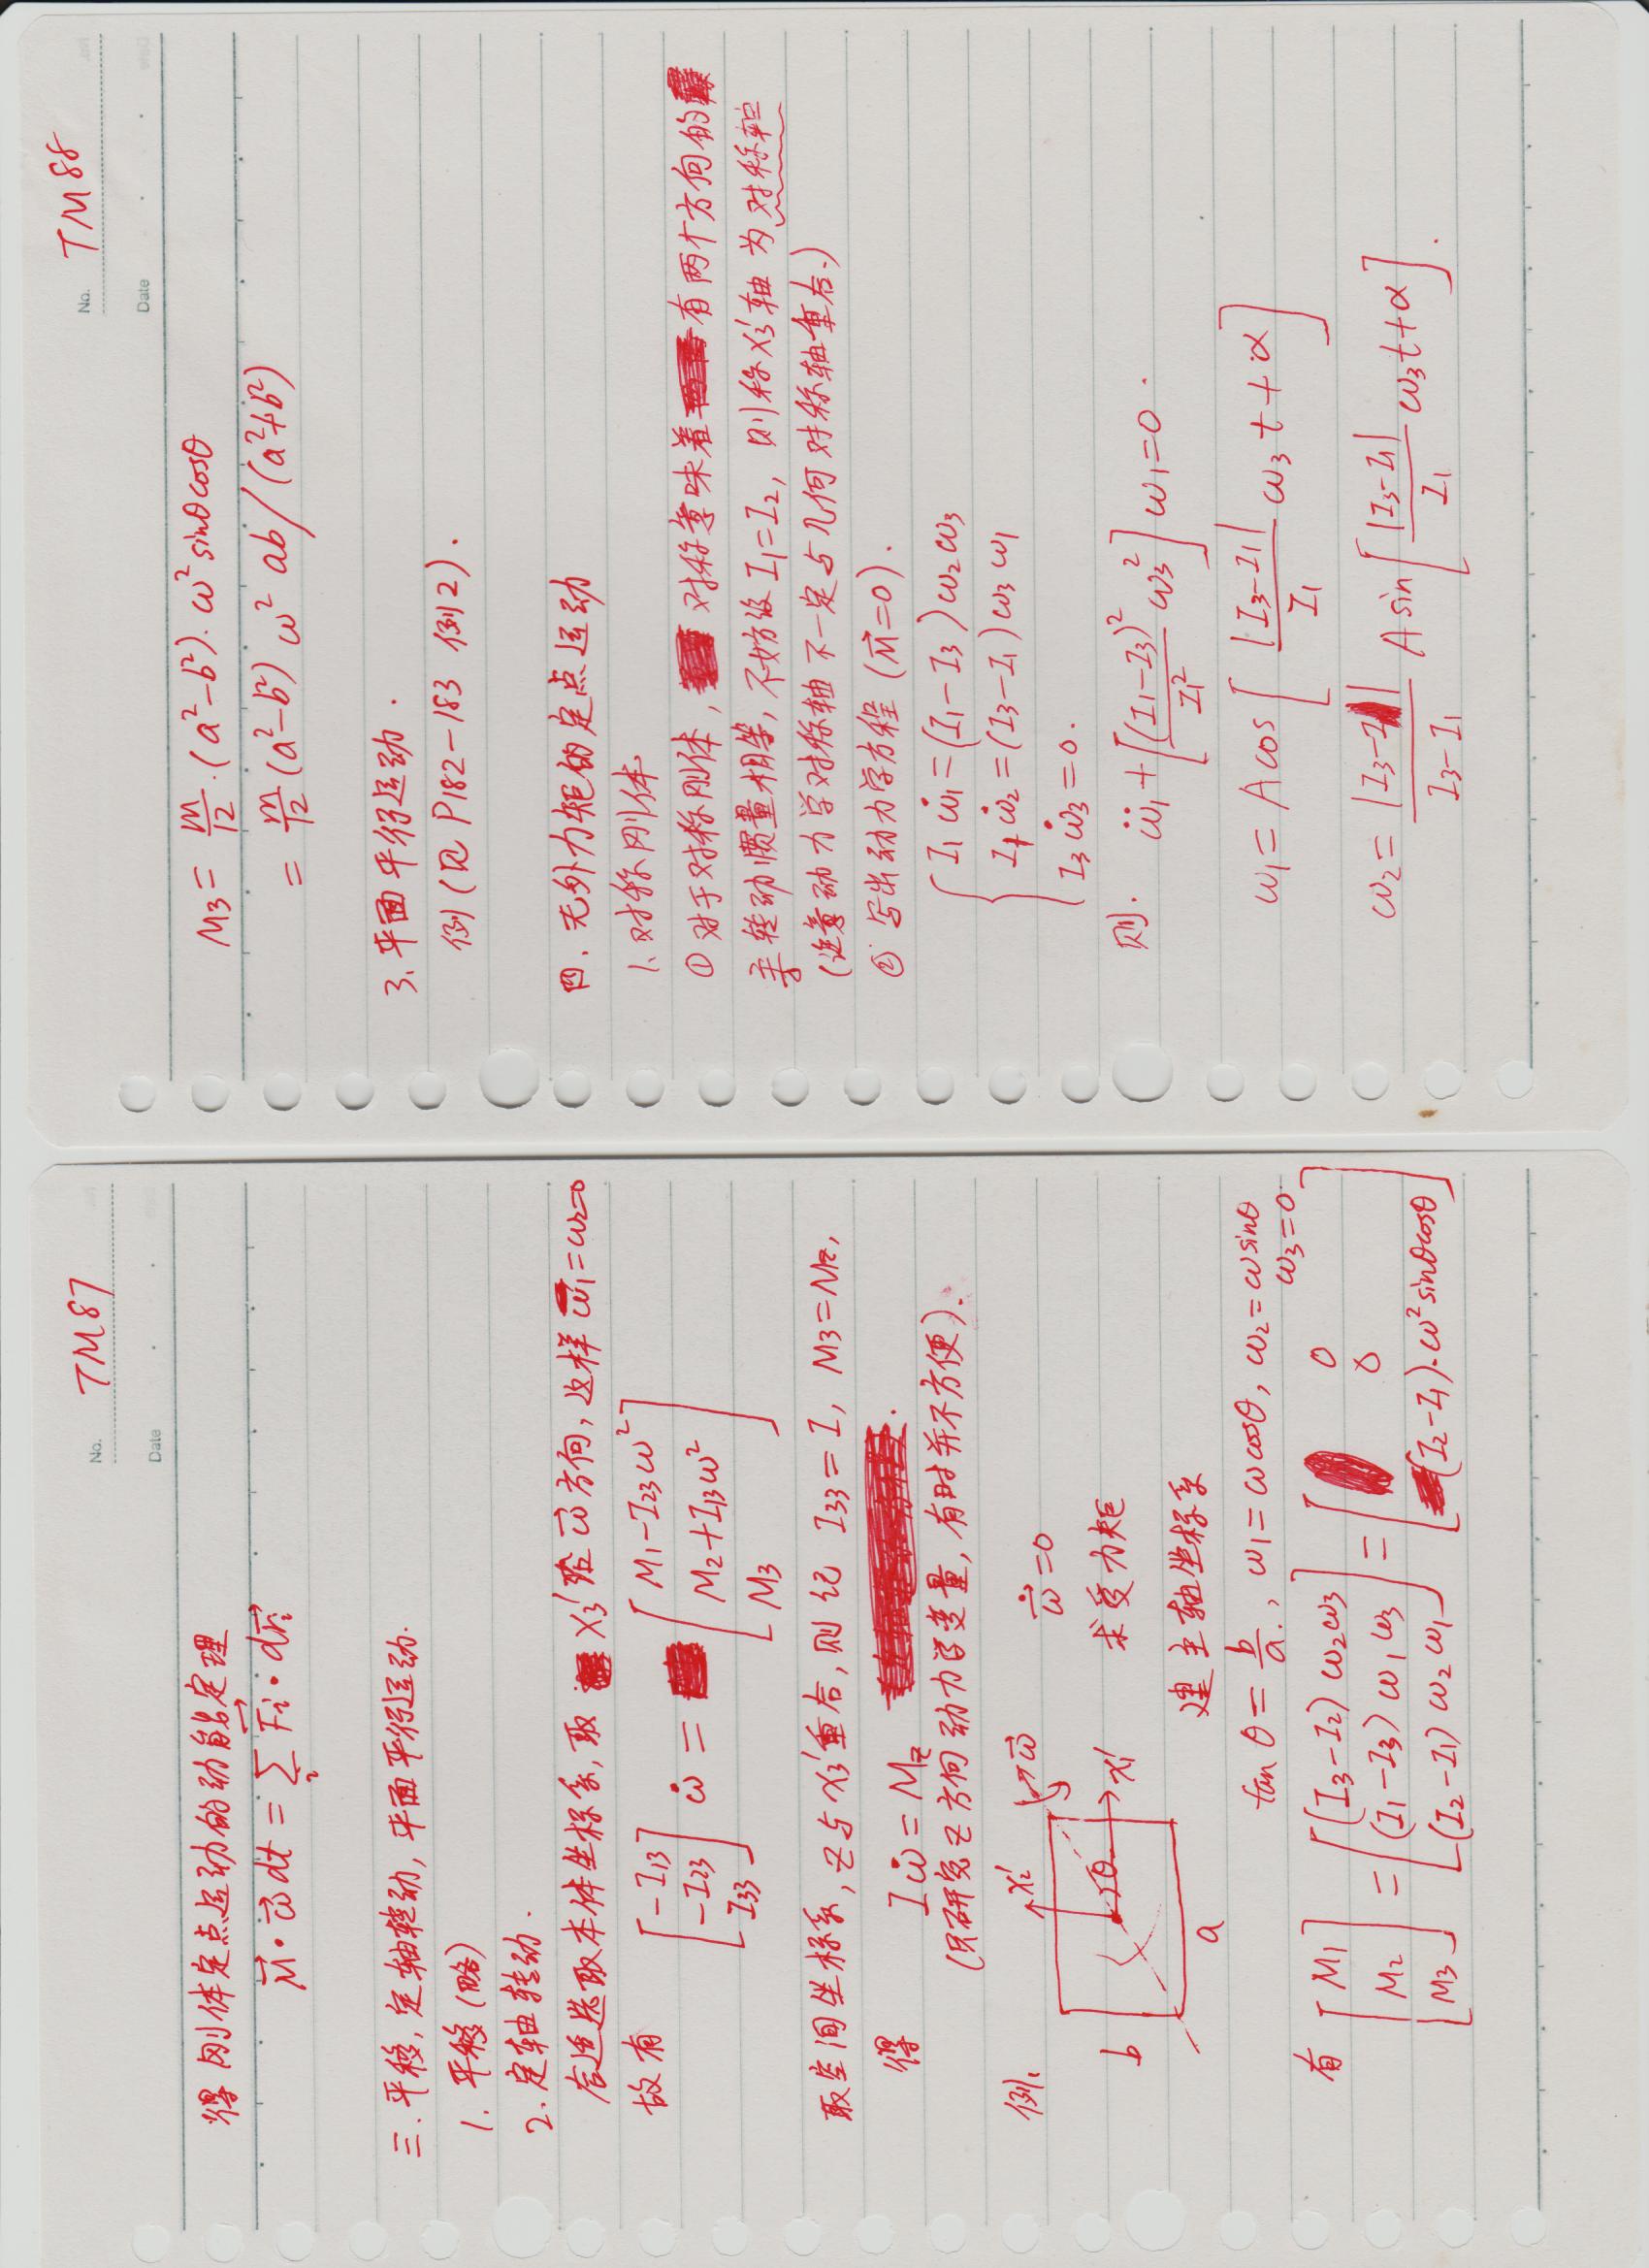 No. TM87
Date
得刚体定点运动的动能定理
$\vec{M}\cdot\vec{\omega}dt=\sum_i\vec{F_i}\cdot d\vec{r_i}$
三.平移,定轴转动,平面平行运动.
1.平移(略)
2.定轴转动.
合适选取本体坐标系,取 $x_3'$ 沿 $\vec{\omega}$ 方向,这样 $\omega_1=\omega_2=0$
故有 $\begin{bmatrix}-I_{13}\\-I_{23}\\I_{33}\end{bmatrix}\dot{\omega}=\begin{bmatrix}M_1-I_{23}\omega^2\\M_2+I_{13}\omega^2\\M_3\end{bmatrix}$
取空间坐标系,z与$x_3'$重合,则记 $I_{33}=I$, $M_3=M_z$,
得 $I\dot{\omega}=M_z$.
(只研究z方向动力学变量,有时并不方便).
例.
$x_2'$ $\vec{\omega}$ $\dot{\vec{\omega}}=0$
θ $x_1'$ 求受力矩
b
a
建主轴坐标系
$\tan\theta=\frac{b}{a}$., $\omega_1=\omega\cos\theta$, $\omega_2=\omega\sin\theta$
$\omega_3=0$.
有 $\begin{bmatrix}M_1\\M_2\\M_3\end{bmatrix}=\begin{bmatrix}(I_3-I_2)\omega_2\omega_3\\(I_1-I_3)\omega_1\omega_3\\(I_2-I_1)\omega_2\omega_1\end{bmatrix}=\begin{bmatrix}0\\0\\(I_2-I_1)\cdot\omega^2\sin\theta\cos\theta\end{bmatrix}$
No. TM88
Date
$M_3=\frac{m}{12}\cdot(a^2-b^2)\cdot\omega^2\sin\theta\cos\theta$
$=\frac{m}{12}(a^2-b^2)\omega^2ab/(a^2+b^2)$
3.平面平行运动.
例(见P182-183 例2).
四.无外力矩的定点运动
1.对称刚体
①对于对称刚体,对称意味着有两个方向的
主转动惯量相等,不妨设$I_1=I_2$,则称$x_3'$轴为对称轴
(注意动力学对称轴不一定与几何对称轴重合.)
②写出动力学方程($\vec{M}=0$).
$\begin{cases}I_1\dot{\omega}_1=(I_1-I_3)\omega_2\omega_3\\I_1\dot{\omega}_2=(I_3-I_1)\omega_3\omega_1\\I_3\dot{\omega}_3=0.\end{cases}$
则. $\ddot{\omega}_1+\left[\frac{(I_1-I_3)^2}{I_1^2}\omega_3^2\right]\omega_1=0$.
$\omega_1=A\cos\left[\frac{|I_3-I_1|}{I_1}\omega_3t+\alpha\right]$
$\omega_2=\frac{|I_3-I_1|}{I_3-I_1}A\sin\left[\frac{|I_3-I_1|}{I_1}\omega_3t+\alpha\right]$.